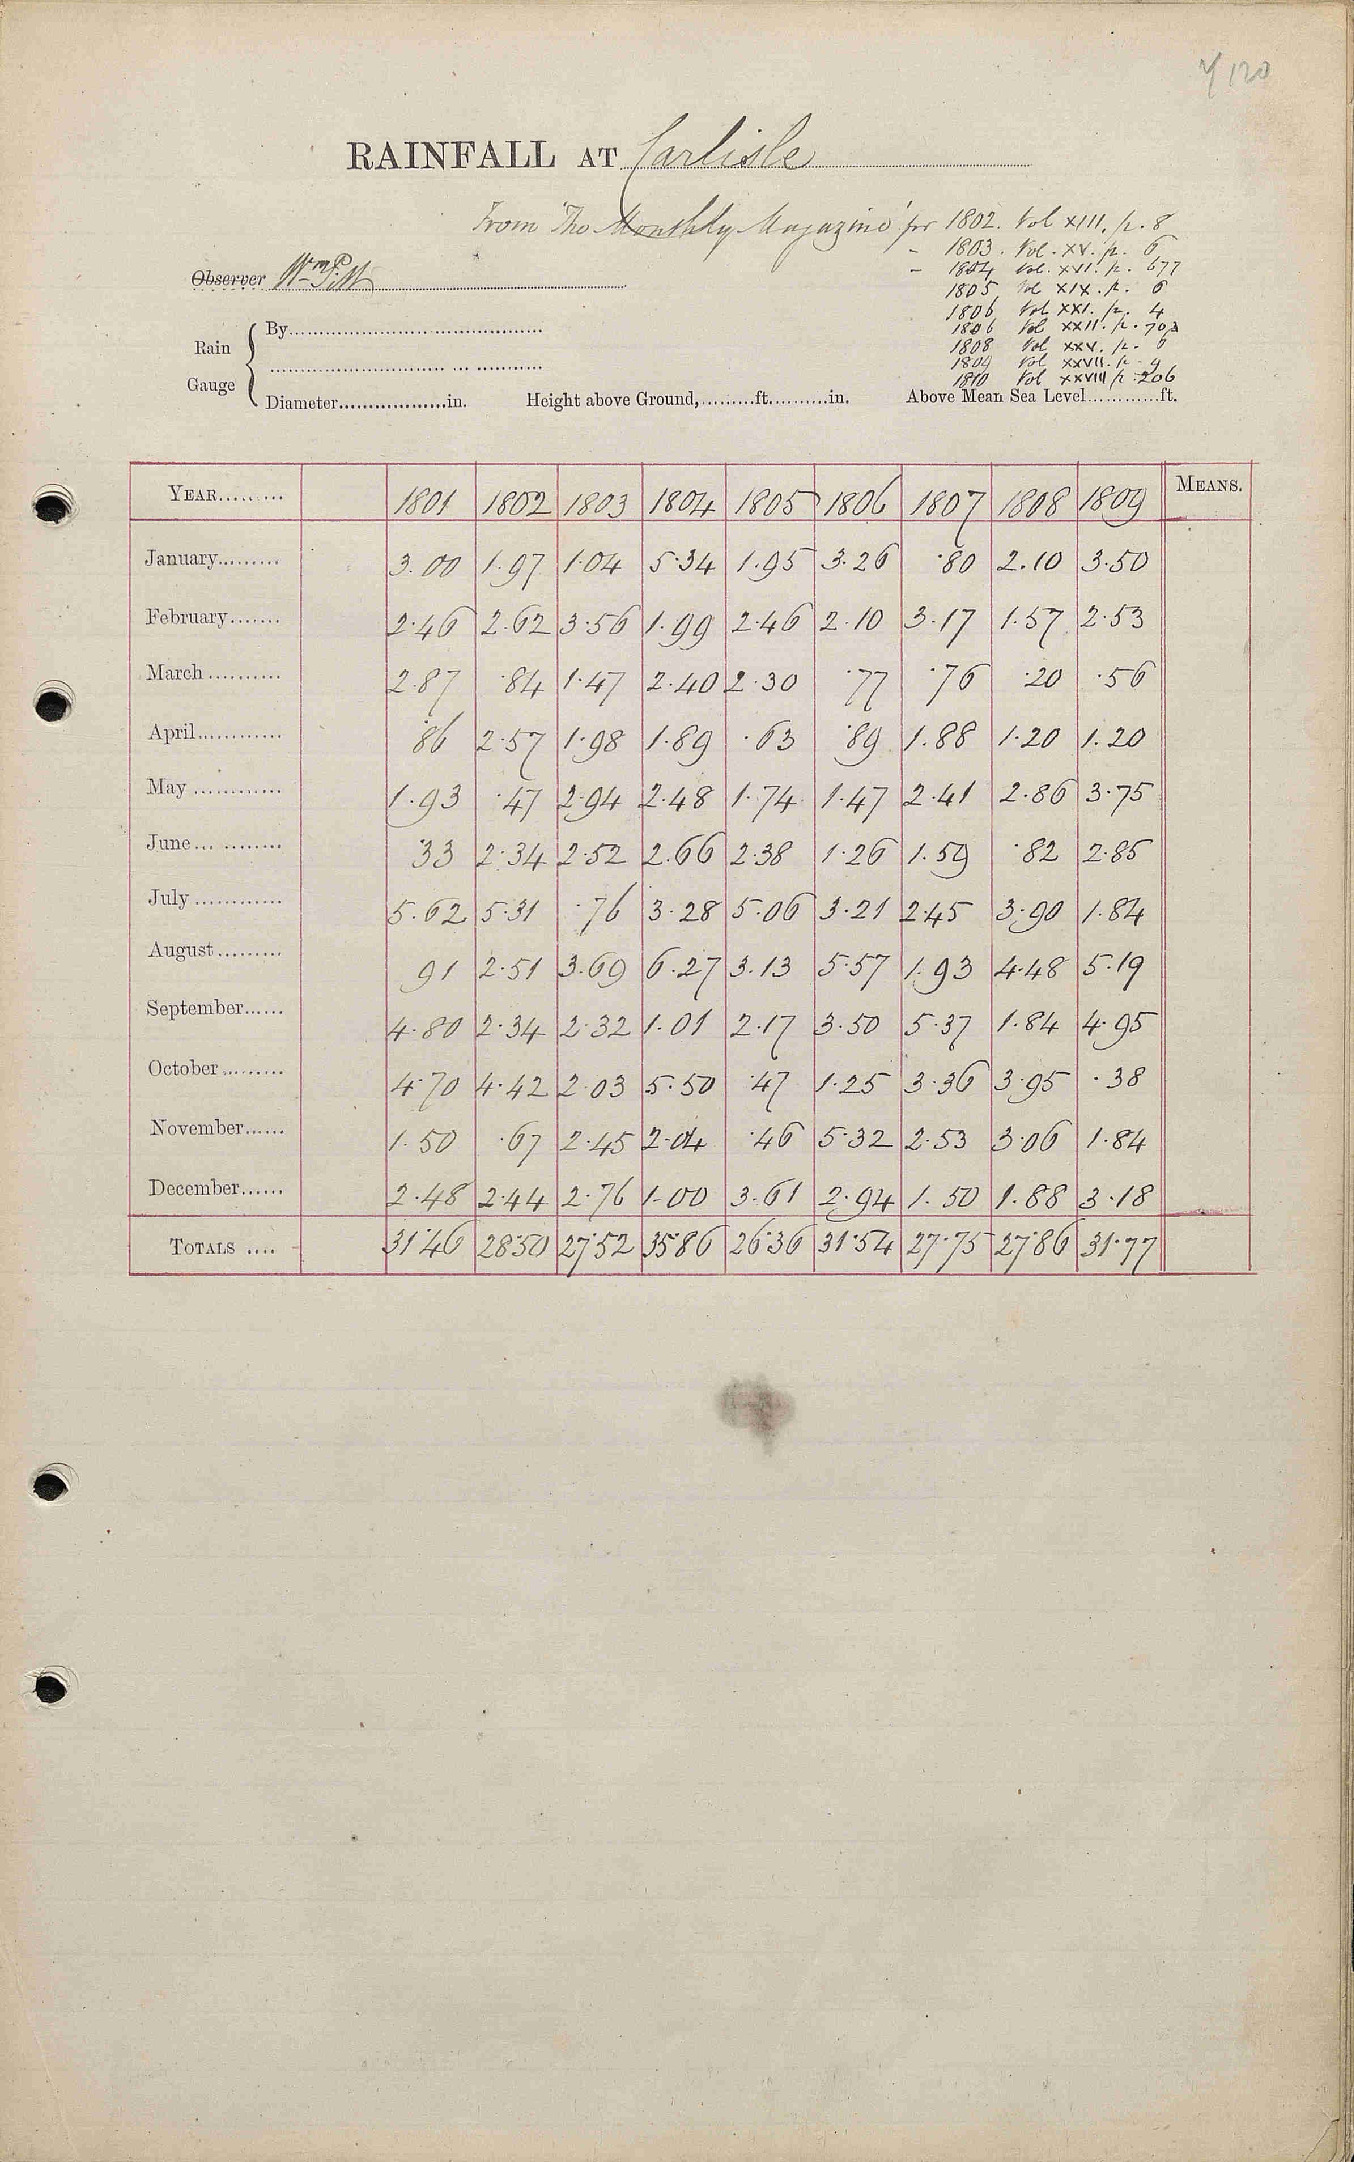 RAINFALL AT Carlisle
From 'The Monthly Magazine' for 1802. Vol XIII. p. 8
- 1803. Vol. XV. p. 6
- 1804 Vol. XVII. p. 677
1805 Vol XIX. p. 6
1806 Vol XXI. p. 4
1806 Vol XXII. p. 702
1808 Vol XXV. p. 6
1809 Vol XXVII. p 9
1810 Vol XXVIII p. 206
Observer Wm Pitt
Rain Gauge
By
Diameter in. Height above Ground, ft. in. Above Mean Sea Level ft.
YEAR 1801 1802 1803 1804 1805 1806 1807 1808 1809 MEANS.
January 3.00 1.97 1.04 5.34 1.95 3.26 .80 2.10 3.50
February 2.46 2.62 3.56 1.99 2.46 2.10 3.17 1.57 2.53
March 2.87 .84 1.47 2.40 2.30 .77 .76 .20 .56
April .86 2.57 1.98 1.89 .63 .89 1.88 1.20 1.20
May 1.93 .47 2.94 2.48 1.74 1.47 2.41 2.86 3.75
June .33 2.34 2.52 2.66 2.38 1.26 1.59 .82 2.85
July 5.62 5.31 .76 3.28 5.06 3.21 2.45 3.90 1.84
August 91 2.51 3.69 6.27 3.13 5.57 1.93 4.48 5.19
September 4.80 2.34 2.32 1.01 2.17 3.50 5.37 1.84 4.95
October 4.70 4.42 2.03 5.50 .47 1.25 3.36 3.95 .38
November 1.50 .67 2.45 2.04 .46 5.32 2.53 3.06 1.84
December 2.48 2.44 2.76 1.00 3.61 2.94 1.50 1.88 3.18
TOTALS 31.46 28.50 27.52 35.86 26.36 31.54 27.75 27.86 31.77